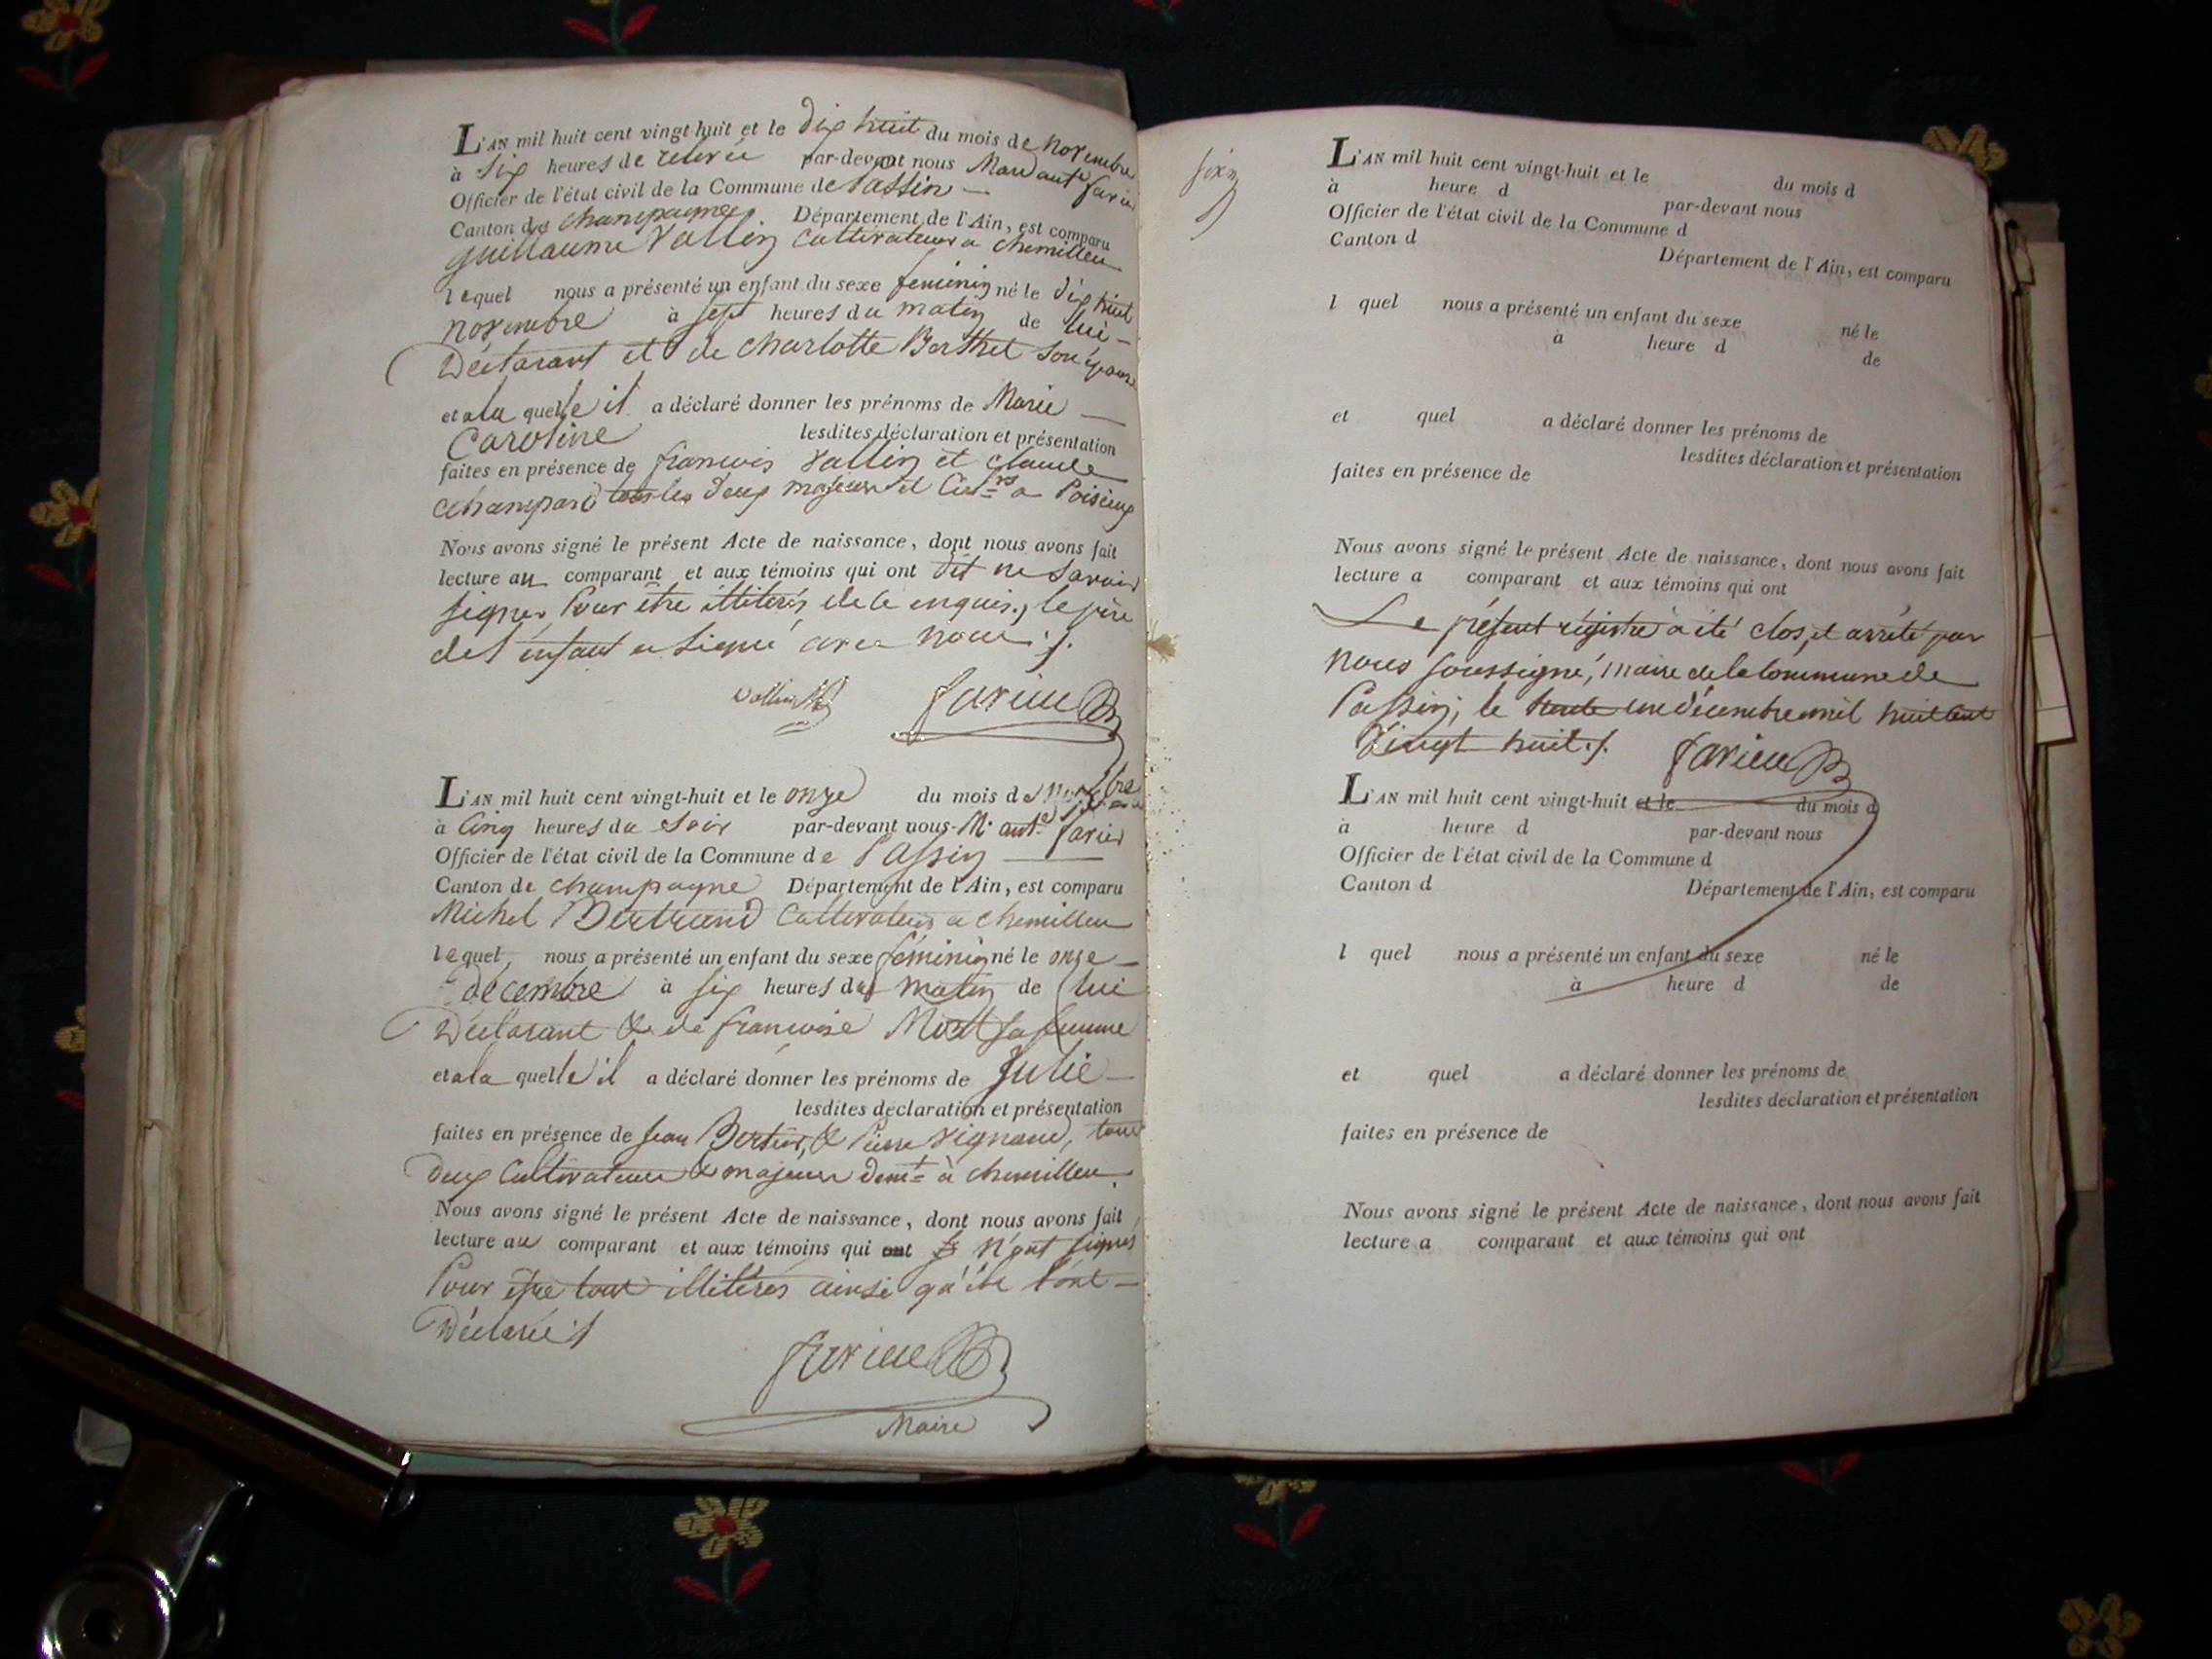 L'AN mil huit cent vingt-huit et le dix huit du mois de novembre
à six heures de relevée par-devant nous Marc ant.e farie
Officier de l'état civil de la Commune de Passin —
Canton de champagne. Département de l'Ain, est comparu
guillaume Vallin Cultivateur a chemilleu
lequel nous a présenté un enfant du sexe feminin né le dix huit
novembre à sept heures du matin de lui —
Déclarant et de charlotte Berthet son épouse
et a la quelle il a déclaré donner les prénoms de Marie —
Caroline lesdites déclaration et présentation
faites en présence de francois Vallin et claude
tous les deux majeurs et Cult.rs a Poisieux
Nous avons signé le présent Acte de naissance, dont nous avons fait
lecture au comparant et aux témoins qui ont dit ne savoir
signer Pour être illiterés, de ce enquis, le père
de l'enfant a signé avec nous ./.
Vallin farieu
L'AN mil huit cent vingt-huit et le onze du mois de
à Cinq heures du soir par-devant nous M. ant.e farieu
Officier de l'état civil de la Commune de Passin —
Canton de champagne Département de l'Ain, est comparu
Michel Bertrand Cultivateur a chemilleu
lequel nous a présenté un enfant du sexe féminin né le onze —
décembre à six heures du matin de lui
Déclarant & de francoise sa femme
et a la quelle il a déclaré donner les prénoms de Julie —
lesdites déclaration et présentation
faites en présence de Jean & Pierre Vignand, tous
deux Cultivateurs & majeurs dem.t à chemilleu.
Nous avons signé le présent Acte de naissance, dont nous avons fait
lecture au comparant et aux témoins qui ont n'ont signés
Pour être tous illiterés ainsi qu'ils l'ont —
Déclaré ./
farieu
Maire
L'AN mil huit cent vingt-huit et le du mois d
à heure d par-devant nous
Officier de l'état civil de la Commune d
Canton d Département de l'Ain, est comparu
l quel nous a présenté un enfant du sexe né le
à heure d de
et quel a déclaré donner les prénoms de
lesdites déclaration et présentation
faites en présence de
Nous avons signé le présent Acte de naissance, dont nous avons fait
lecture a comparant et aux témoins qui ont
Le présent régistre a été clos, et arrêté par
nous soussigné, maire de la Commune de
Passin, le trente un décembre mil huit cent
vingt huit ./. farieu
L'AN mil huit cent vingt-huit et le du mois d
à heure d par-devant nous
Officier de l'état civil de la Commune d
Canton d Département de l'Ain, est comparu
l quel nous a présenté un enfant du sexe né le
à heure d de
et quel a déclaré donner les prénoms de
lesdites déclaration et présentation
faites en présence de
Nous avons signé le présent Acte de naissance, dont nous avons fait
lecture a comparant et aux témoins qui ont